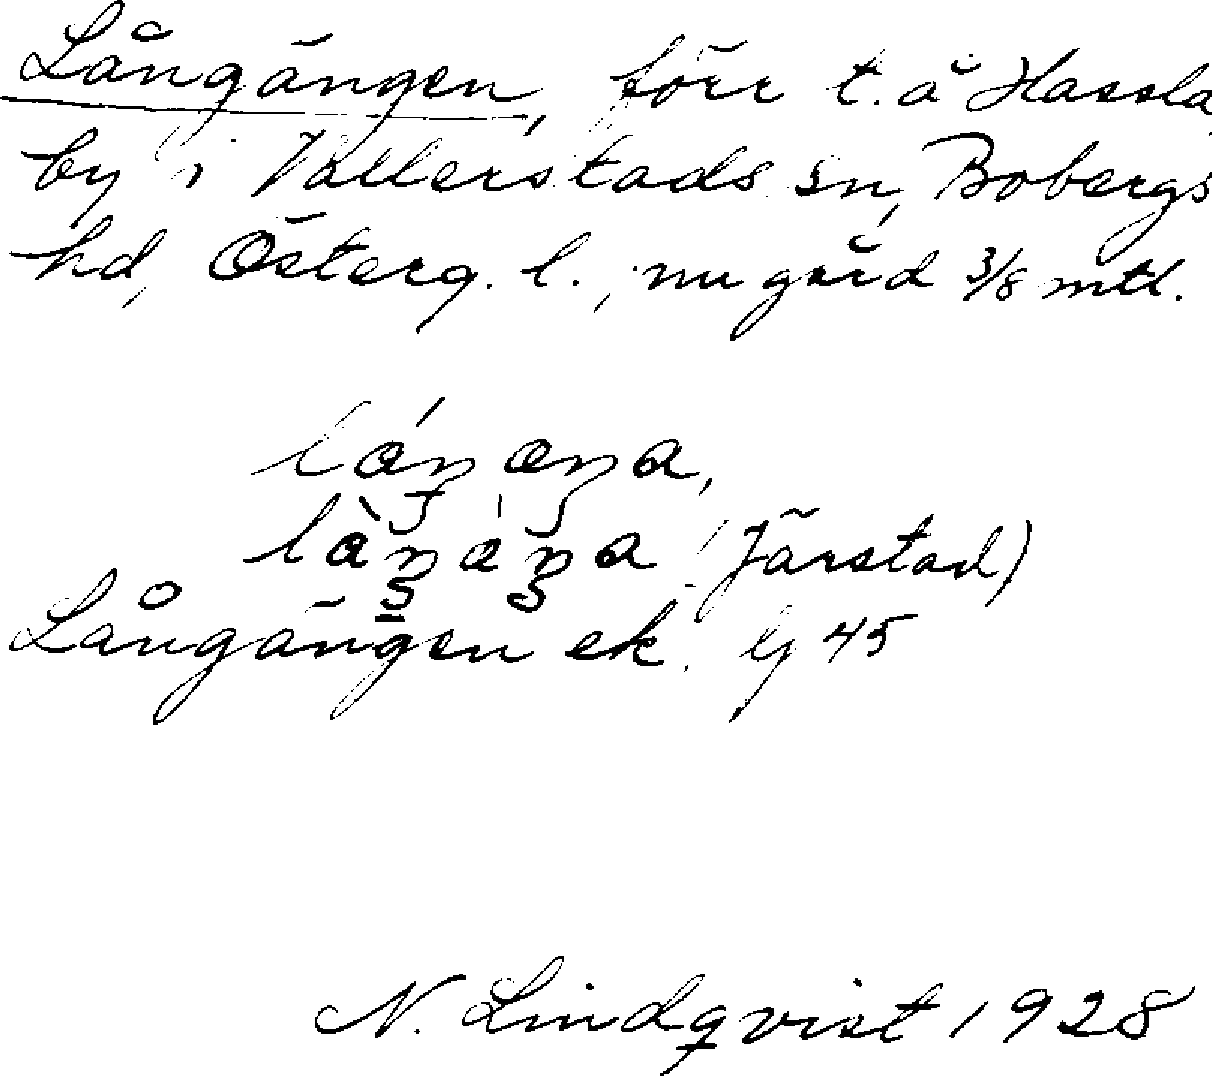 Långängen, förr t. å Hassla
by i Vallerstads sn, Bobergs
hd, Österg. l., nu gård 3/8 mtl.
(Järstad)
Långängen ek. bl 45
N. Lindqvist 1928